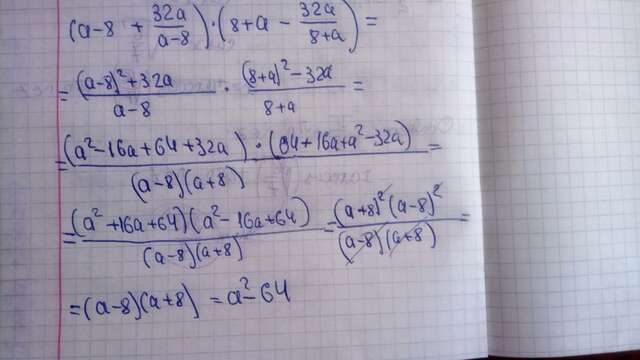 (a-8 + 32a/(a-8)) · (8+a - 32a/(8+a)) =
= ((a-8)²+32a)/(a-8) · ((8+a)²-32a)/(8+a) =
= ((a²-16a+64+32a) · (64+16a+a²-32a))/((a-8)(a+8)) =
= ((a²+16a+64)(a²-16a+64))/((a-8)(a+8)) = ((a+8)²(a-8)²)/((a-8)(a+8)) =
= (a-8)(a+8) = a²-64